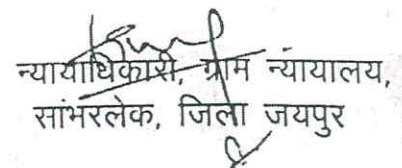 न्यायाधिकारी, ग्राम न्यायालय,
सांभरलेक, जिला जयपुर